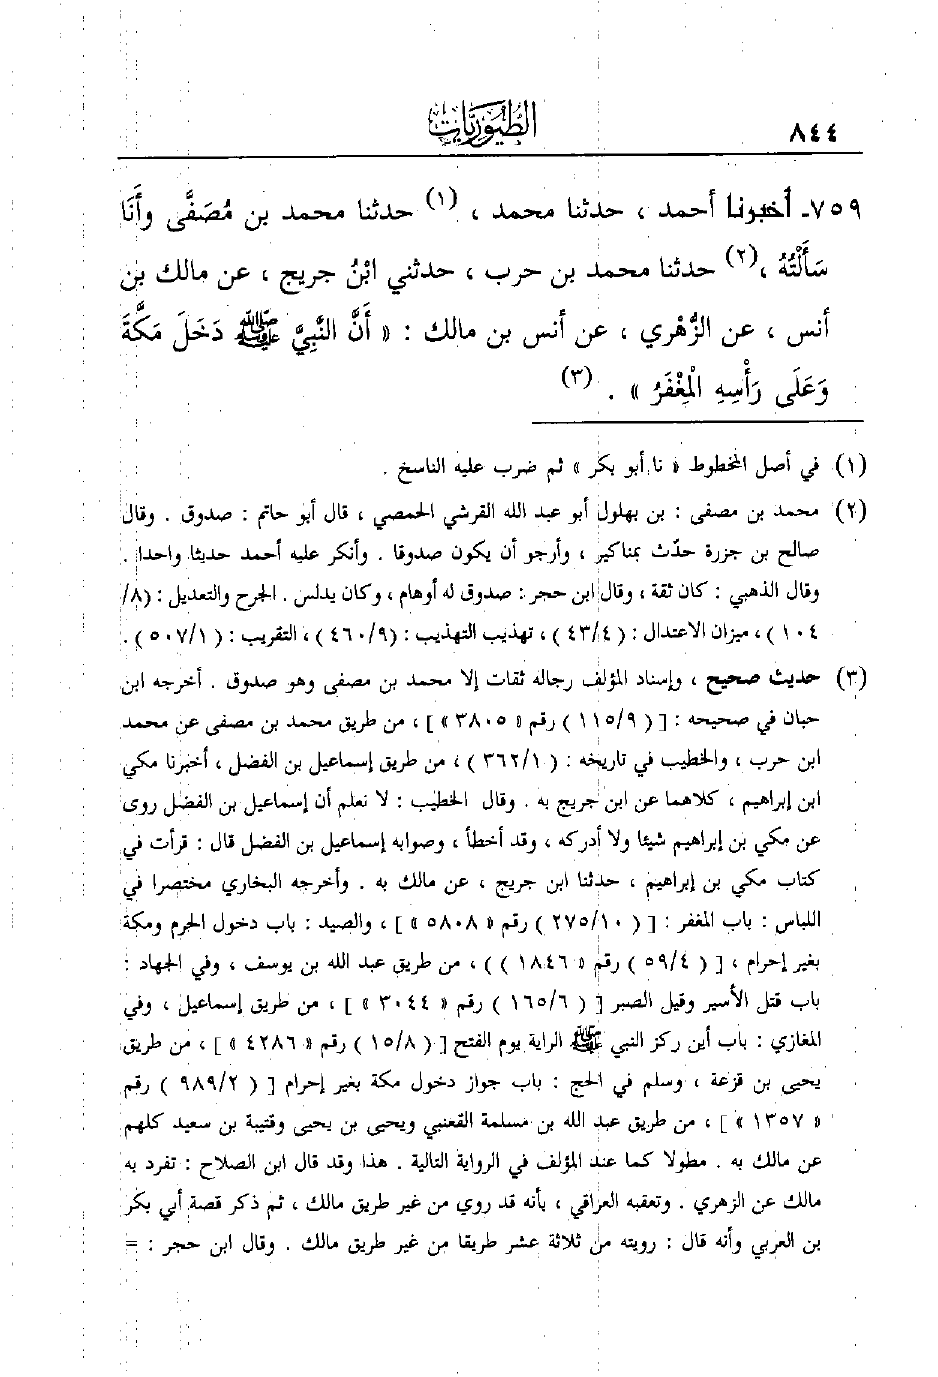 ٨٤٤
الطيوريات
٧٥٩ـ أخبرنا أحمد ، حدثنا محمد ، (١) حدثنا محمد بن مُصَفَّى وأَنَا
سَأَلْتُهُ ،(٢) حدثنا محمد بن حرب ، حدثني ابْنُ جريج ، عن مالك بن
أنس ، عن الزُّهْري ، عن أنس بن مالك : « أَنَّ النَّبِيَّ ﷺ دَخَلَ مَكَّةَ
وَعَلَى رَأْسِهِ الْمِغْفَرُ » . (٣)
(١) في أصل المخطوط « نا أبو بكر » ثم ضرب عليه الناسخ .
(٢) محمد بن مصفى : بن بهلول أبو عبد الله القرشي الحمصي ، قال أبو حاتم : صدوق . وقال
صالح بن جزرة حدّث بمناكير ، وأرجو أن يكون صدوقا . وأنكر عليه أحمد حديثا واحدا .
وقال الذهبي : كان ثقة ، وقال ابن حجر : صدوق له أوهام ، وكان يدلس . الجرح والتعديل : (٨/
١٠٤ ) ، ميزان الاعتدال : ( ٤٣/٤ ) ، تهذيب التهذيب : (٤٦٠/٩ ) ، التقريب : ( ٥٠٧/١ ) .
(٣) حديث صحيح ، وإسناد المؤلف رجاله ثقات إلا محمد بن مصفى وهو صدوق . أخرجه ابن
حبان في صحيحه : [ ( ١١٥/٩ ) رقم « ٣٨٠٥ » ] ، من طريق محمد بن مصفى عن محمد
ابن حرب ، والخطيب في تاريخه : ( ٣٦٢/١ ) ، من طريق إسماعيل بن الفضل ، أخبرنا مكي
ابن إبراهيم ، كلاهما عن ابن جريج به . وقال الخطيب : لا نعلم أن إسماعيل بن الفضل روى
عن مكي بن إبراهيم شيئا ولا أدركه ، وقد أخطأ ، وصوابه إسماعيل بن الفضل قال : قرأت في
كتاب مكي بن إبراهيم ، حدثنا ابن جريج ، عن مالك به . وأخرجه البخاري مختصرا في
اللباس : باب المغفر : [ ( ٢٧٥/١٠ ) رقم « ٥٨٠٨ » ] ، والصيد : باب دخول الحرم ومكة
بغير إحرام ، [ ( ٥٩/٤ ) رقم « ١٨٤٦ ) ) ، من طريق عبد الله بن يوسف ، وفي الجهاد :
باب قتل الأسير وقيل الصبر [ ( ١٦٥/٦ ) رقم « ٣٠٤٤ » ] ، من طريق إسماعيل ، وفي
المغازي : باب أين ركز النبي ﷺ الراية يوم الفتح [ ( ١٥/٨ ) رقم « ٤٢٨٦ » ] ، من طريق
يحيى بن قزعة ، وسلم في الحج : باب جواز دخول مكة بغير إحرام [ ( ٩٨٩/٢ ) رقم
« ١٣٥٧ » ] ، من طريق عبد الله بن مسلمة القعنبي ويحيى بن يحيى وقتيبة بن سعيد كلهم
عن مالك به . مطولا كما عند المؤلف في الرواية التالية . هذا وقد قال ابن الصلاح : تفرد به
مالك عن الزهري . وتعقبه العراقي ، بأنه قد روي من غير طريق مالك ، ثم ذكر قصة أبي بكر
بن العربي وأنه قال : رويته من ثلاثة عشر طريقا من غير طريق مالك . وقال ابن حجر : =